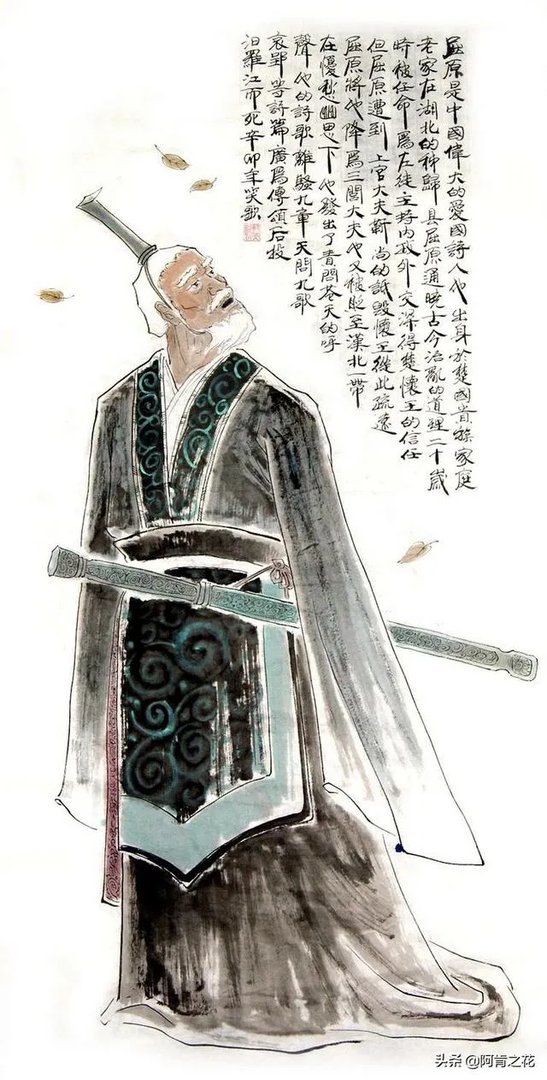 屈原是中國偉大的愛國詩人他出身於楚國貴族家庭
老家在湖北的秭歸縣屈原通曉古今治亂的道理二十歲
時被任命為左徒主持內政外交深得楚懷王的信任
但屈原遭到上官大夫靳尚的詆毀懷王從此疏遠
屈原將他降為三閭大夫他又被貶至漢北一帶
在憂愁幽思下他發出了責問蒼天的呼
聲他的詩歌離騷九章天問九歌
哀郢等詩篇廣為傳頌后投
汨羅江而死辛卯年笑歌
头条 @阿肯之花